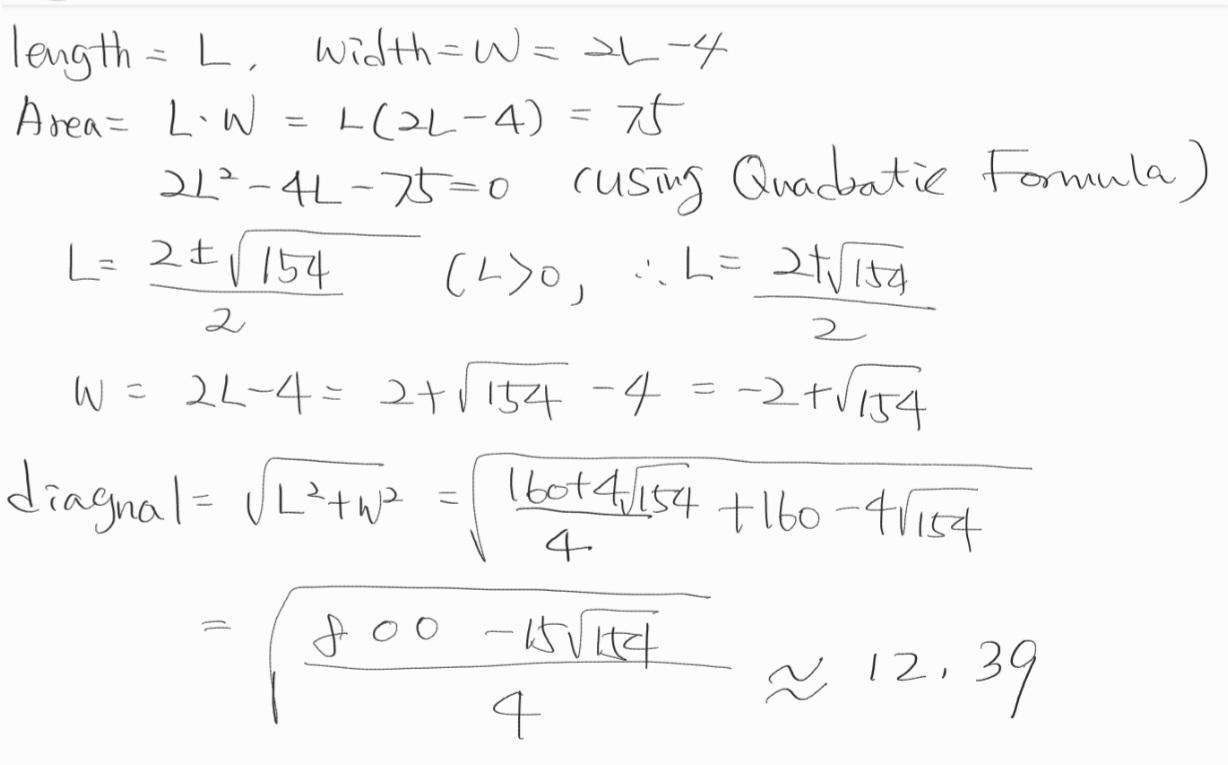 length = L, width = W = 2L-4
Area = L·W = L(2L-4) = 75
2L²-4L-75=0 (using Quadratic Formula)
L = (2±√154)/2 (L>0, ∴ L = (2+√154)/2
W = 2L-4 = 2+√154 -4 = -2+√154
diagnal = √(L²+W²) = √((160+4√154)/4 +160-4√154)
= √((800-15√154)/4) ≈ 12.39